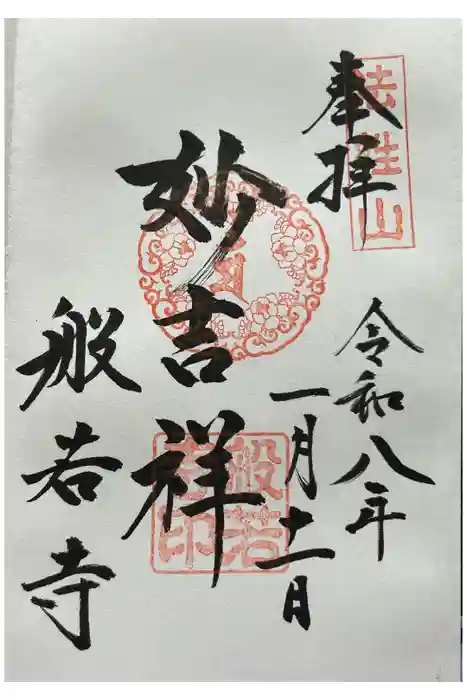 奉拝
法性山
令和八年
一月十二日
妙吉祥
般若寺印
般若寺